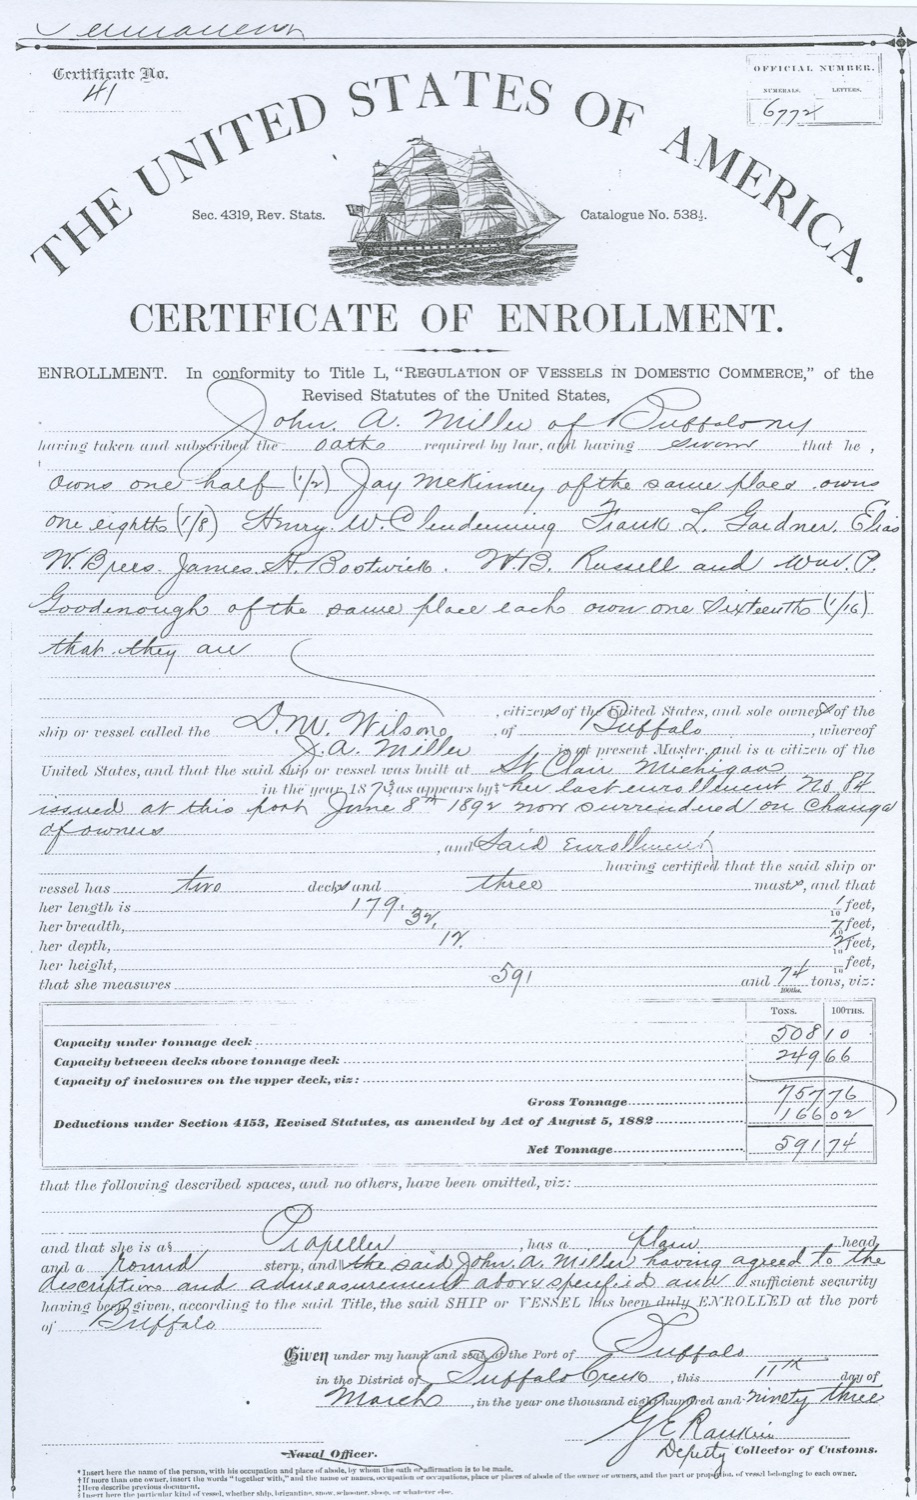 Permanent
Certificate No.
41
OFFICIAL NUMBER.
NUMERALS. LETTERS.
6772
THE UNITED STATES OF AMERICA.
Sec. 4319, Rev. Stats.
Catalogue No. 538½.
CERTIFICATE OF ENROLLMENT.
ENROLLMENT. In conformity to Title L, "REGULATION OF VESSELS IN DOMESTIC COMMERCE," of the
Revised Statutes of the United States,
John. A. Miller of Buffalo NY
having taken and subscribed the oath required by law, and having sworn that he,
owns one half (1/2) Jay McKinney of the same place owns
one eighth (1/8) Henry. W. Clendenning Frank L. Gardner. Elias
W. Brees. James. H. Bostwick. W.B. Russell and Wm. P.
Goodenough of the same place each own one sixteenth (1/16)
that they are
, citizens of the United States, and sole owners of the
ship or vessel called the D.W. Wilson, of Buffalo, whereof
J. A. Miller is at present Master, and is a citizen of the
United States, and that the said ship or vessel was built at St Clair Michigan
in the year 1873 as appears by‡ her last enrollment No. 84
issued at this port June 8th 1892 now surrendered on Change
of owners
, and Said Enrollment
having certified that the said ship or
vessel has two decks and three masts, and that
her length is 179. 1/10 feet,
her breadth, 32, 7/10 feet,
her depth, 12. 2/10 feet,
her height, /10 feet,
that she measures 591 and 74 100ths. tons, viz:
TONS. 100THS.
Capacity under tonnage deck 508 10
Capacity between decks above tonnage deck 249 66
Capacity of inclosures on the upper deck, viz:
Gross Tonnage 757 76
Deductions under Section 4153, Revised Statutes, as amended by Act of August 5, 1882 166 02
Net Tonnage 591 74
that the following described spaces, and no others, have been omitted, viz:
and that she is a§ Propeller, has a plain head
and a round stern, and the said John. A. Miller having agreed to the
description and admeasurement above specified and sufficient security
having been given, according to the said Title, the said SHIP or VESSEL has been duly ENROLLED at the port
of Buffalo
Given under my hand and seal at the Port of Buffalo
in the District of Buffalo Creek, this 11th day of
March, in the year one thousand eight hundred and ninety three
G E Rankin
Naval Officer.
Deputy Collector of Customs.
* Insert here the name of the person, with his occupation and place of abode, by whom the oath or affirmation is to be made.
† If more than one owner, insert the words "together with," and the name or names, occupation or occupations, place or places of abode of the owner or owners, and the part or proportion of vessel belonging to each owner.
‡ Here describe previous document.
§ Insert here the particular kind of vessel, whether ship, brigantine, snow, schooner, sloop, or whatever else.